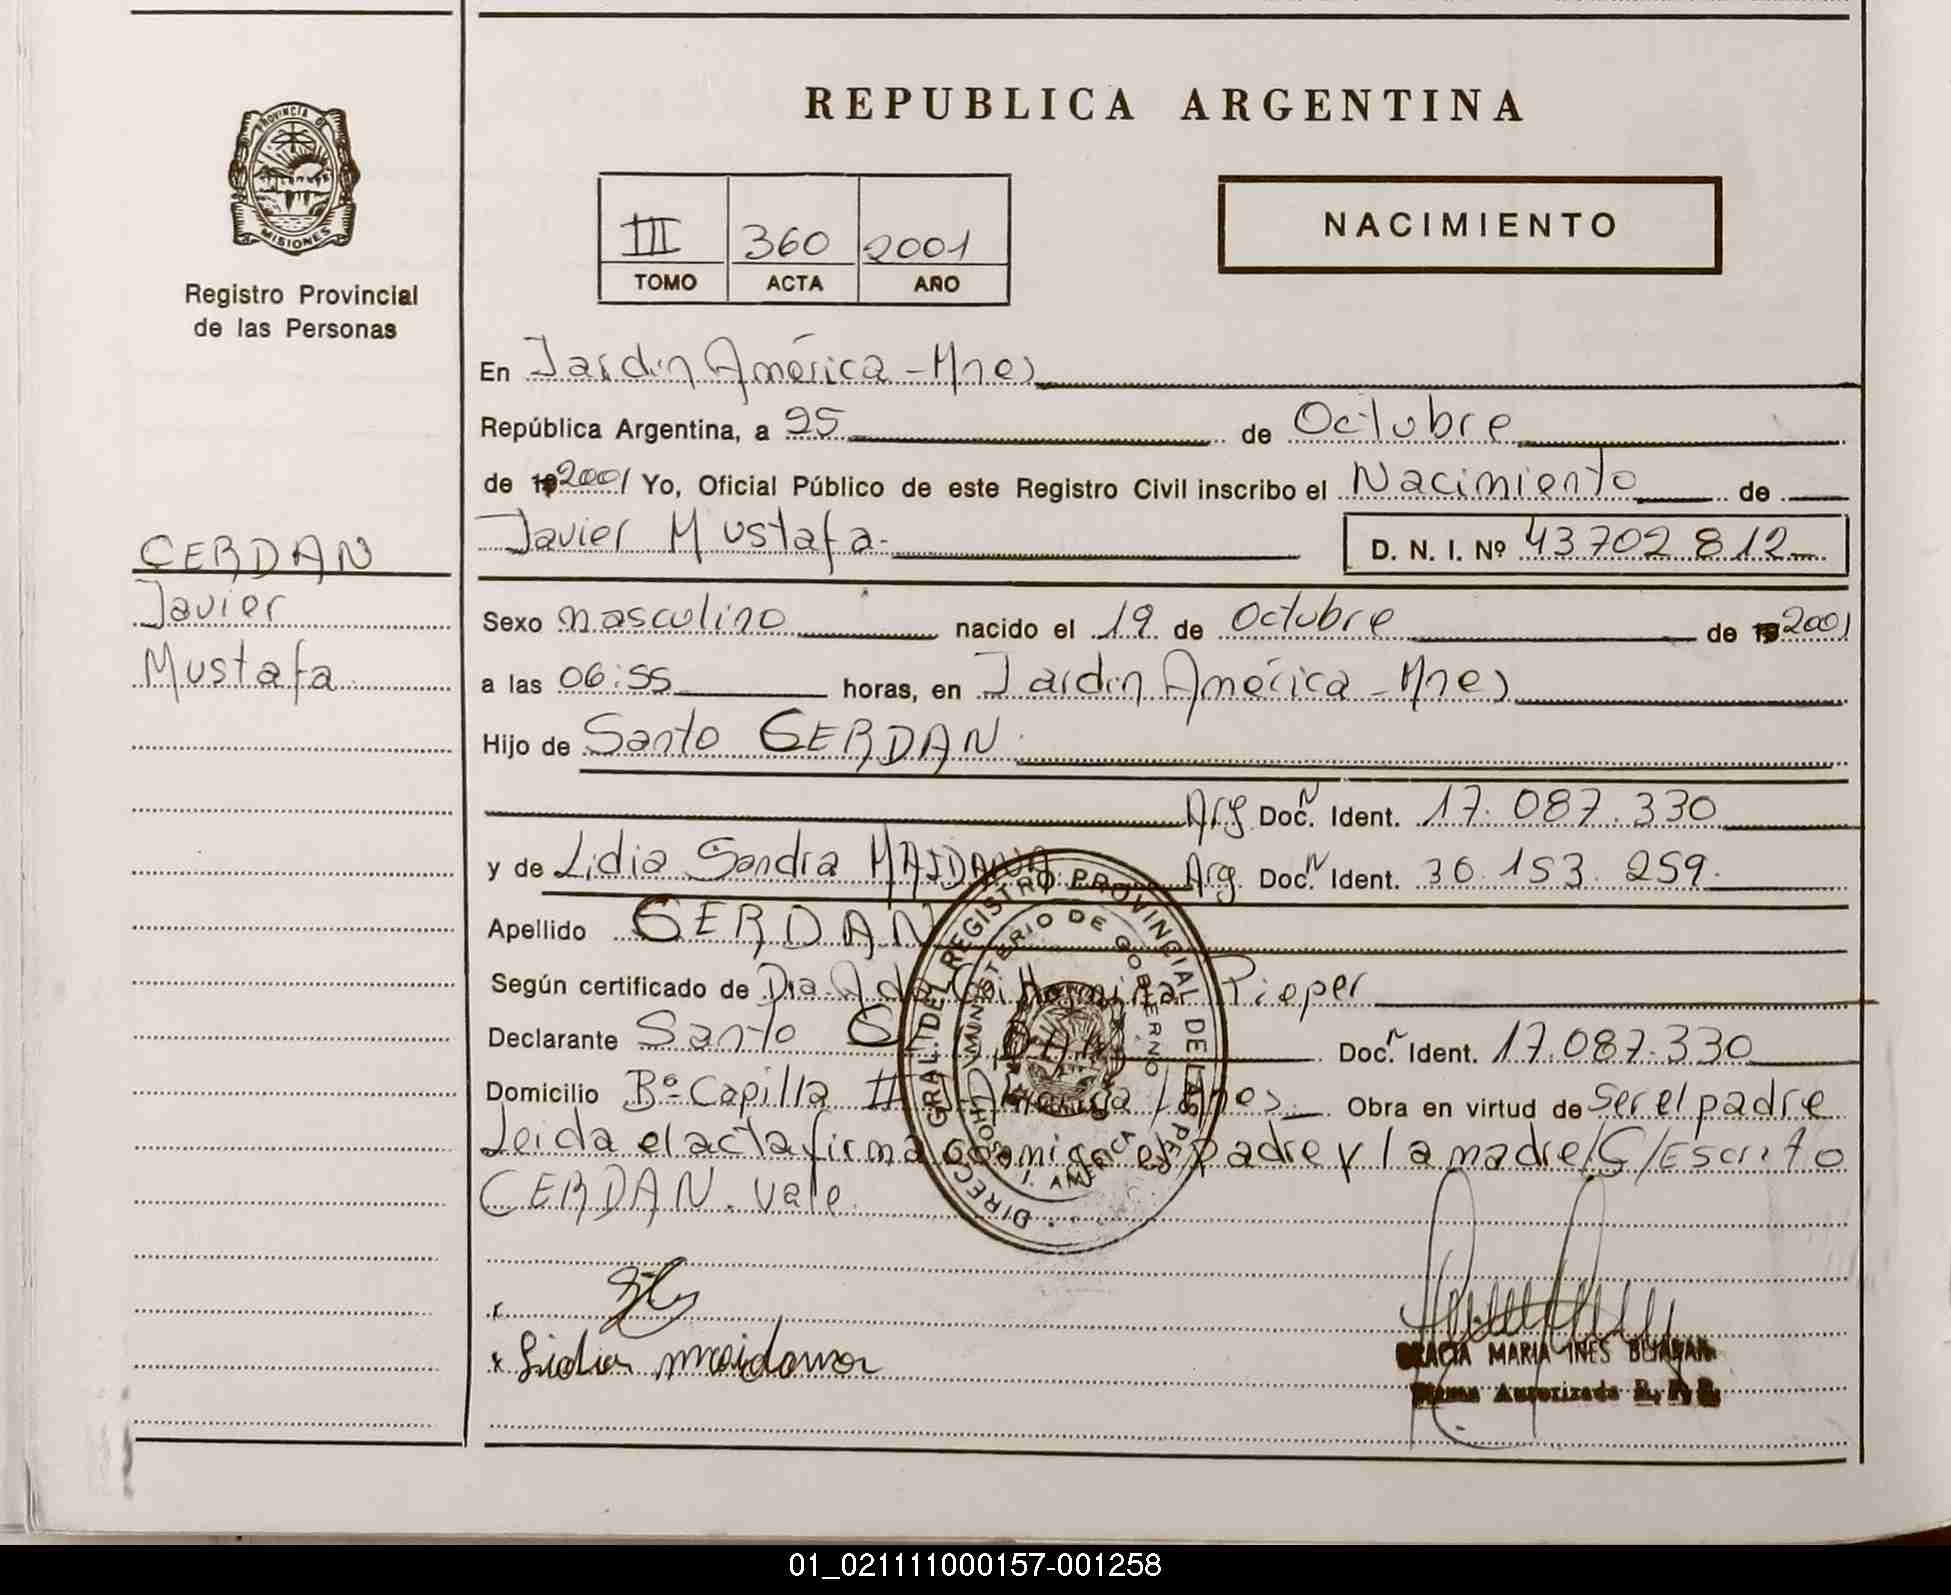 REPUBLICA ARGENTINA
PROVINCIA DE
MISIONES
Registro Provincial
de las Personas
III 360 2001
TOMO ACTA AÑO
NACIMIENTO
En Jardin América - Mnes
República Argentina, a 25 de Octubre
de 19 2001 Yo, Oficial Público de este Registro Civil inscribo el Nacimiento de
Javier Mustafa.
D. N. I. Nº 43702812
CERDAN
Javier
Mustafa
Sexo masculino nacido el 19 de Octubre de 19 2001
a las 06:55 horas, en Jardin América - Mnes
Hijo de Santo CERDAN
Arg Doc. N Ident. 17.087.330
y de Lidia Sandra MAIDANA Arg. Doc. N Ident. 30.153.259.
Apellido CERDAN
Según certificado de Dra. Pieper
Declarante Santo Doc. N Ident. 17.087.330
Domicilio Bº Capilla II Obra en virtud de Ser el padre
Leida el acta firma conmigo el padre y la madre/C/Escrito
CERDAN. vale.
DIRECC. GRAL. DEL REGISTRO PROVINCIAL DE LAS PERSONAS
MINISTERIO DE GOBIERNO
J. AMERICA
x Lidia maidana
GRACIA MARIA INES
Firma Autorizada R. P. P.
01_021111000157-001258